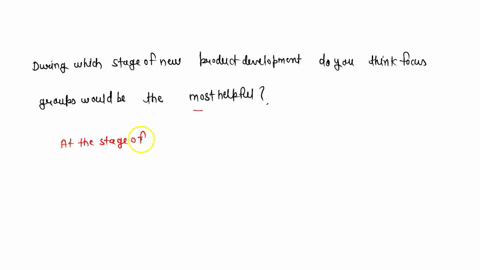 During which stage of new product development do you think focus
groups would be the most helpful?.
At the stage of